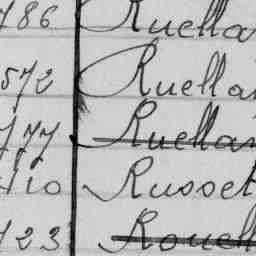 786 Ruella
572 Ruella
777 Ruellan
110 Russet
123 Rouell